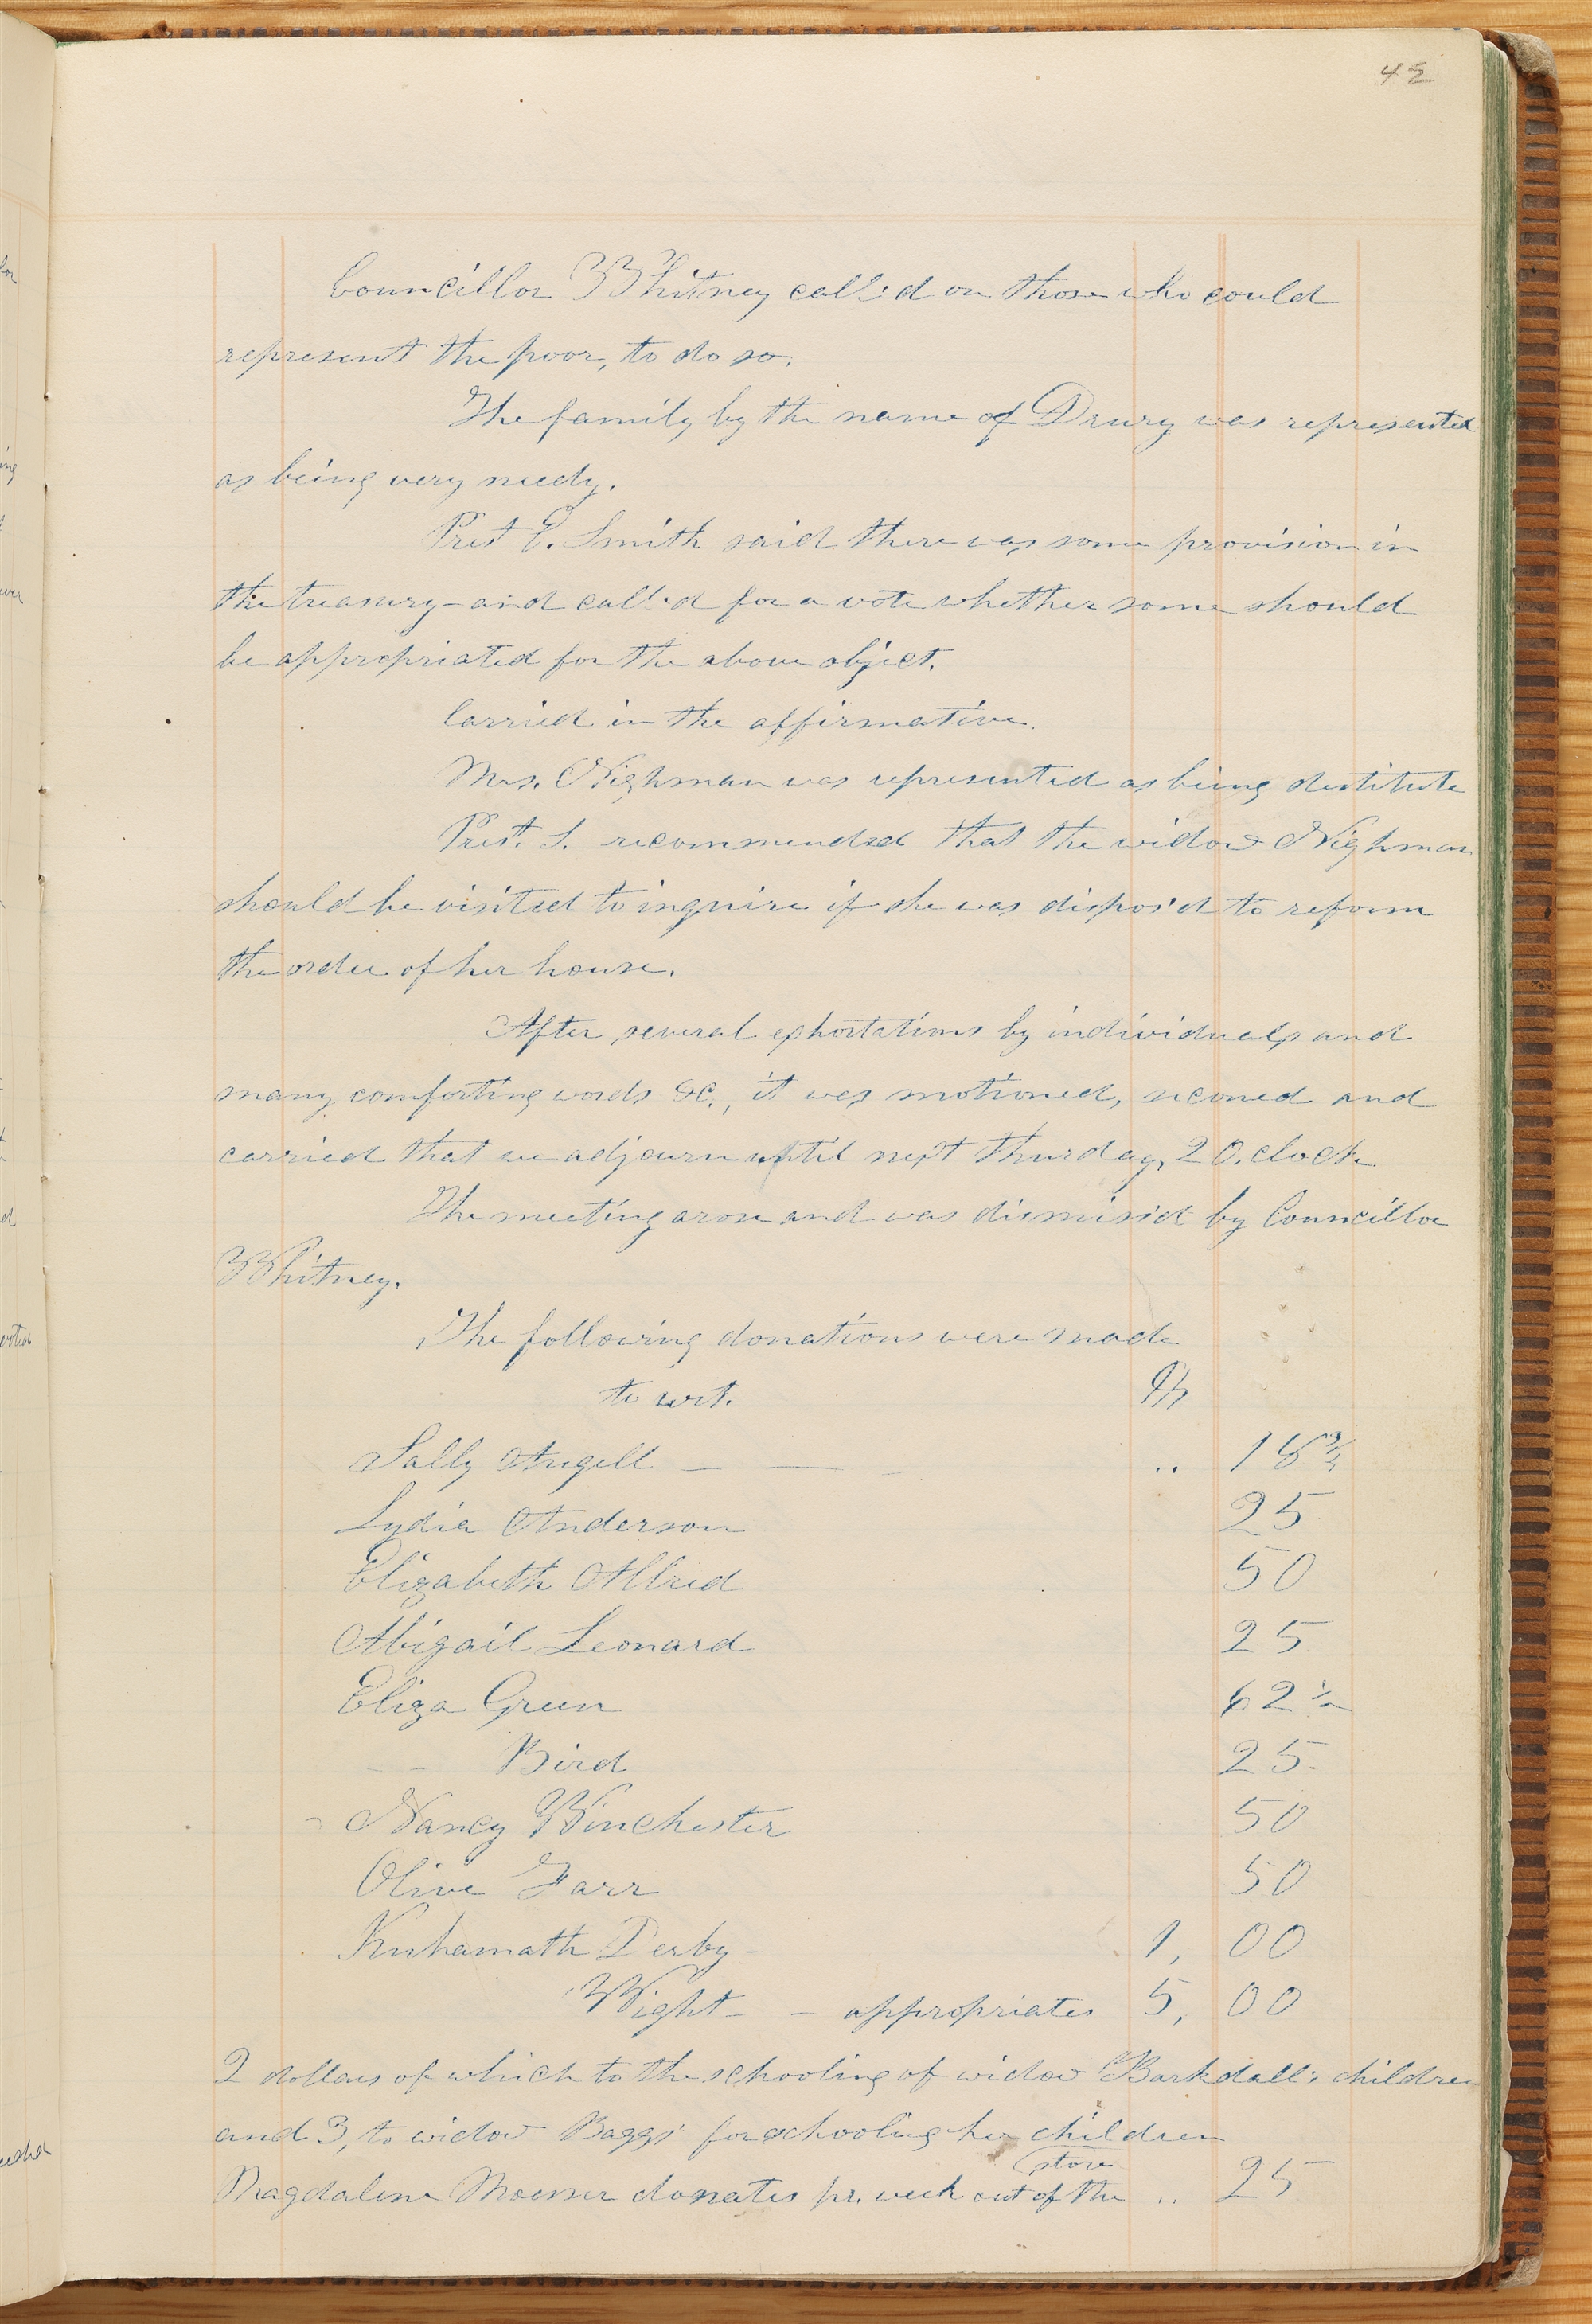 45
Councillor Whitney call'd on those who could
represent the poor, to do so.
The family by the name of Drury was represented
as being very needy.
Prest E. Smith said there was some provision in
the treasury – and call'd for a vote whether some should
be appropriated for the above object.
Carried in the affirmative.
Mrs. Nighman was represented as being destitute
Prest. S. recommended that the widow Nighman
should be visited to inquire if she was dispos'd to reform
the order of her house.
After several exhortations by individuals and
many comforting words &c., it was motioned, seconed and
carried that we adjourn until next thurday, 2 O.clock
The meeting arose and was dismiss'd by Councillor
Whitney.
The following donations were made
to wit.
Sally Angell — — .. 18¾
Lydia Anderson 25
Elizabeth Allred 50
Abigail Leonard 25
Eliza Green 62½
— Bird 25
Nancy Winchester 50
Olive Farr 50
Kuhamath Derby – 1, 00
Wight – – appropriates 5, 00
2 dollars of which to the schooling of widow Barkdall's children
and 3, to widow Baggs' for schooling her children
store
Magdalene Moesser donates pr. week out of the .. 25